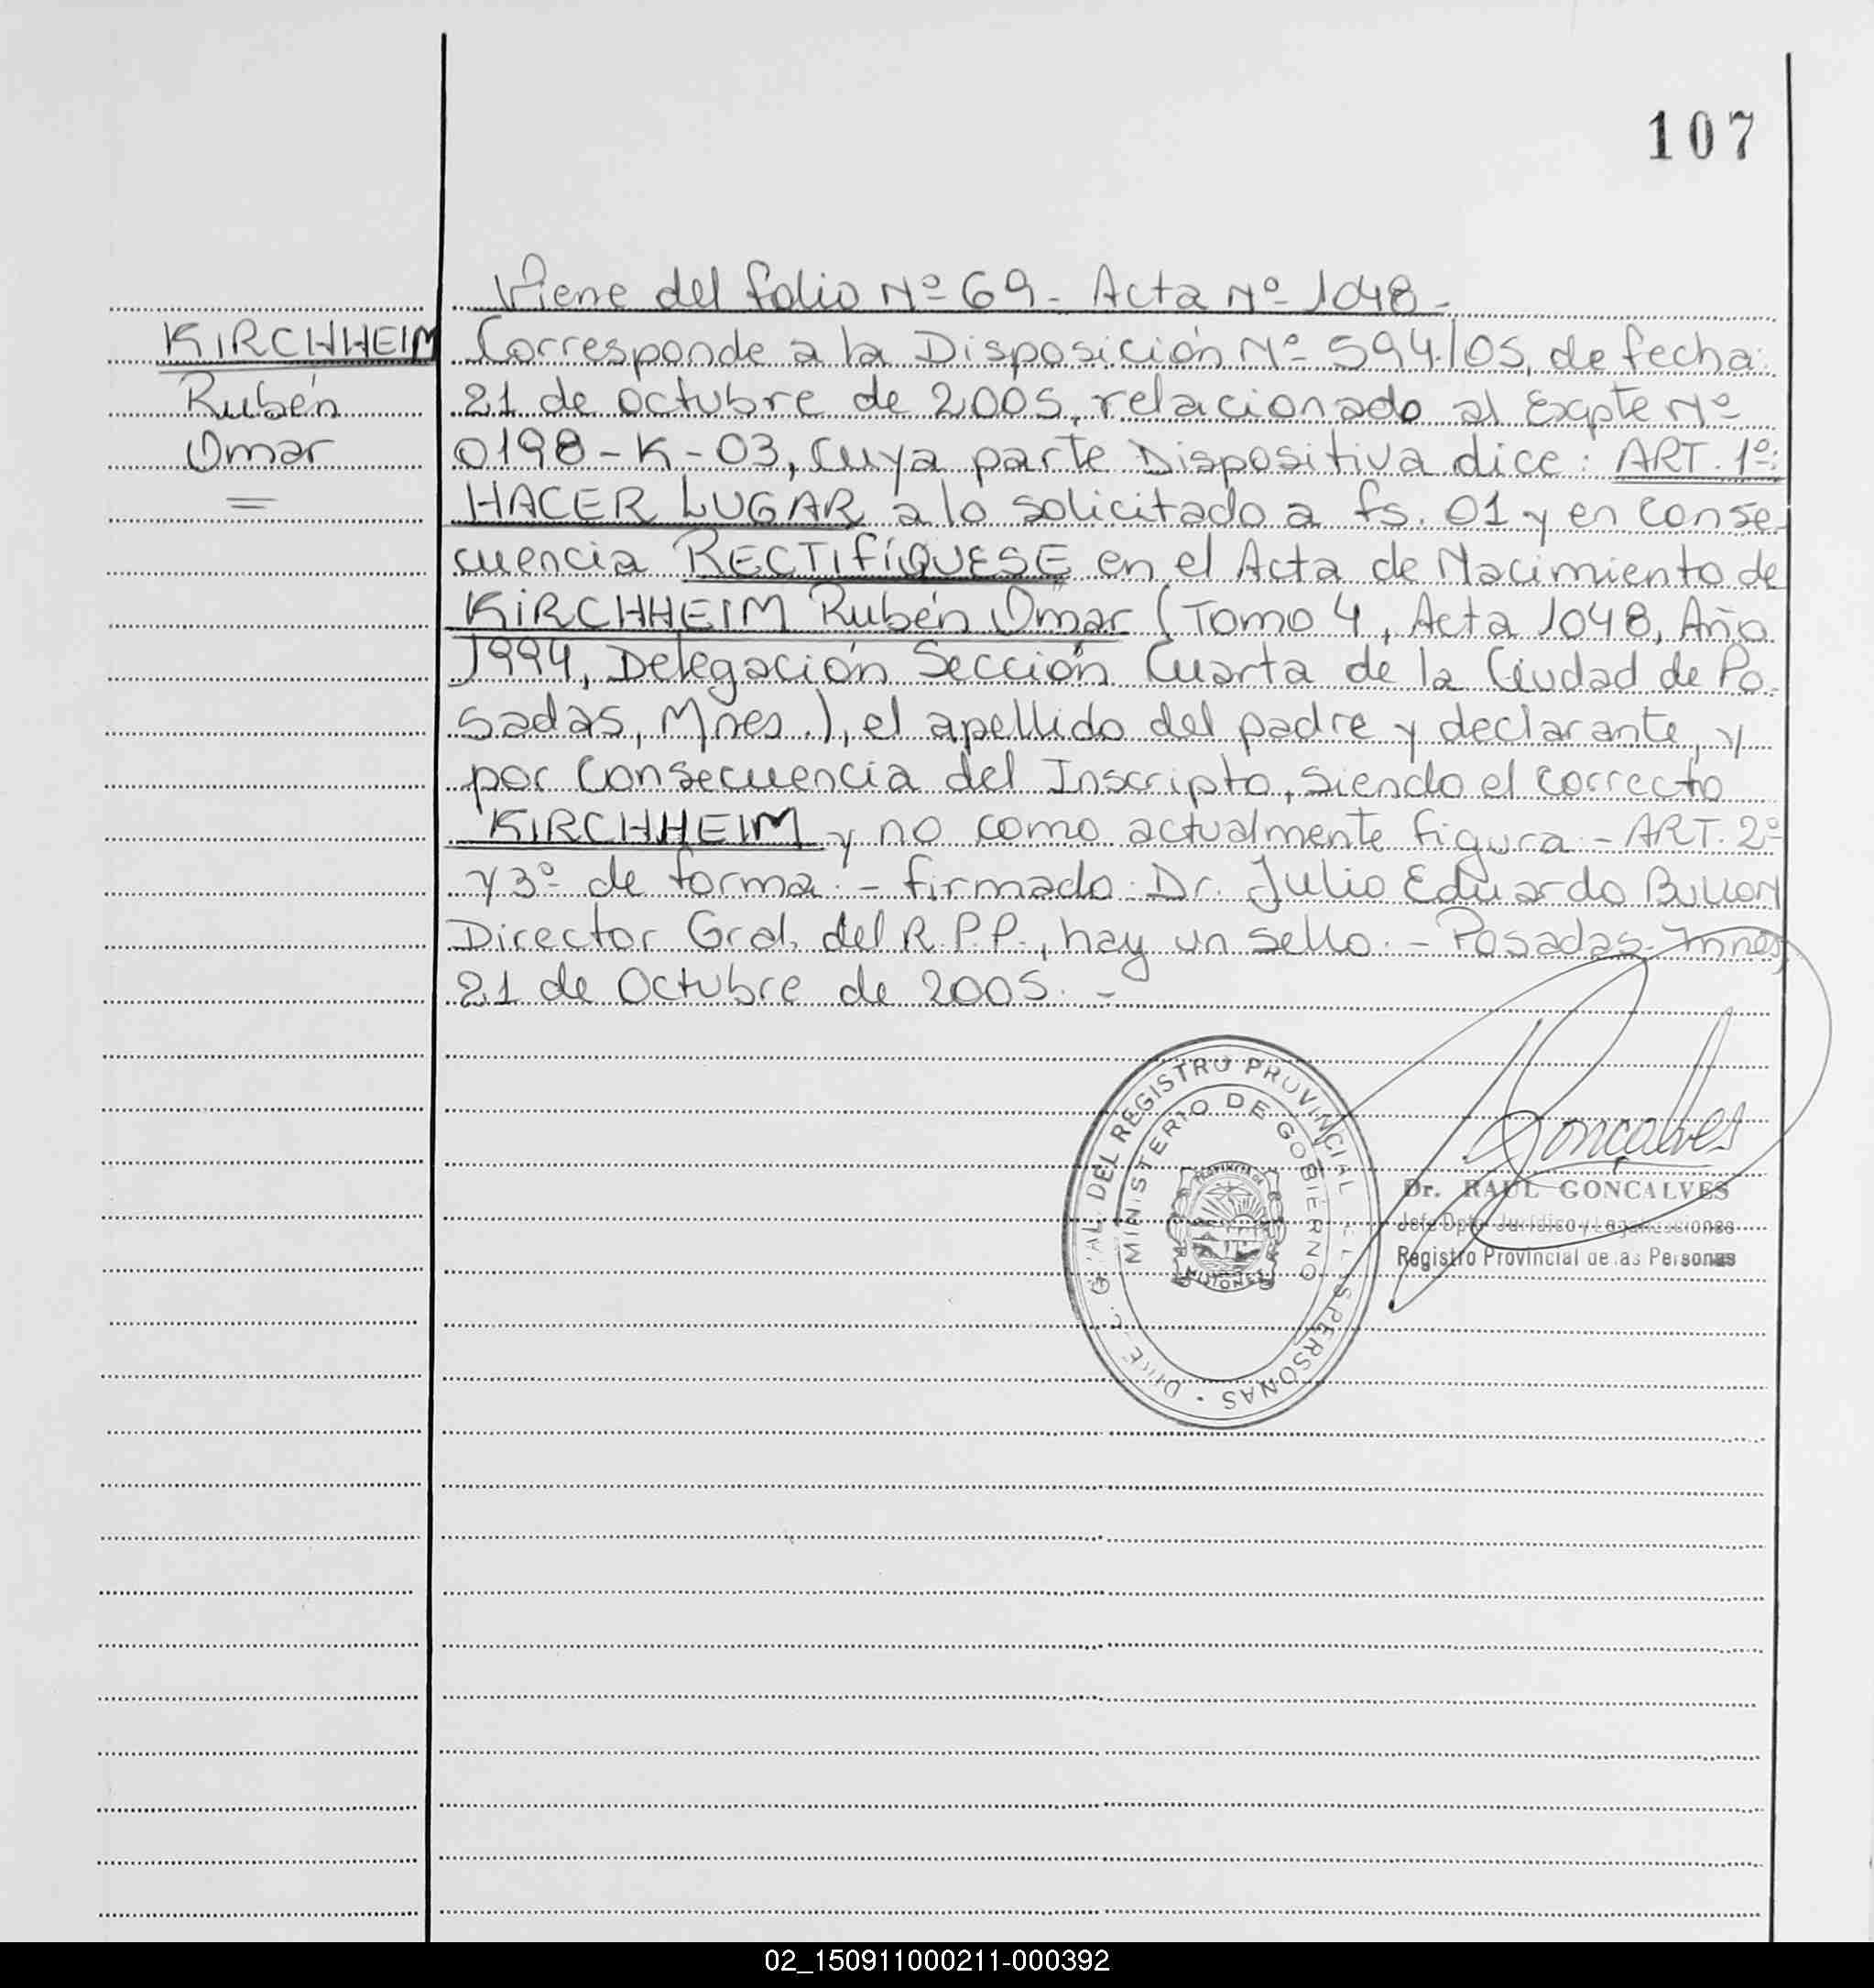 107
Viene del folio Nº 69 - Acta Nº 1048 -
KIRCHHEIM
Rubén
Omar
Corresponde a la Disposición Nº 594/05, de fecha:
21 de octubre de 2005, relacionado al Expte Nº
0198-K-03, cuya parte Dispositiva dice: ART. 1º:
HACER LUGAR a lo solicitado a fs. 01 y en conse-
cuencia RECTIFÍQUESE en el Acta de Nacimiento de
KIRCHHEIM Rubén Omar (Tomo 4, Acta 1048, Año
1994, Delegación Sección Cuarta de la Ciudad de Po-
sadas, Mnes.), el apellido del padre y declarante, y
por consecuencia del Inscripto, siendo el correcto
KIRCHHEIM y no como actualmente figura.- ART. 2º
y 3º de forma.- firmado: Dr. Julio Eduardo
Director Gral. del R.P.P., hay un sello.- Posadas, Mnes,
21 de Octubre de 2005.-
DEL REGISTRO PROVINCIAL PERSONAS
MINISTERIO DE GOBIERNO
PROVINCIA DE
MISIONES
Gonçalves
Dr. RAUL GONCALVES
Jefe Dpto. Jurídico y
Registro Provincial de las Personas
02_150911000211-000392